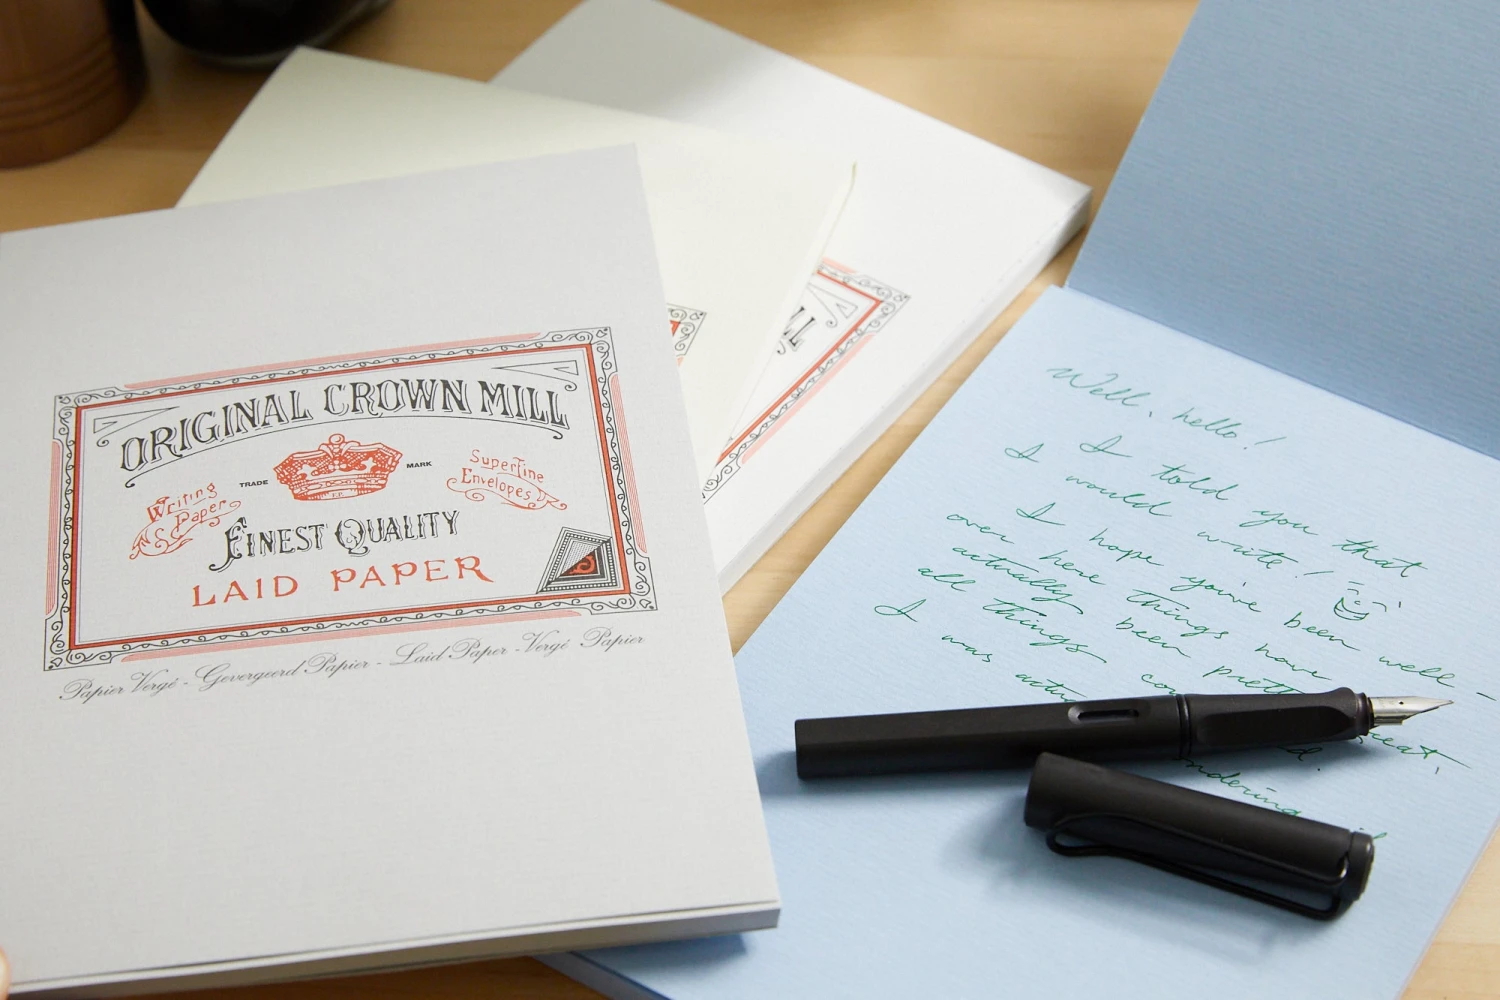 ORIGINAL CROWN MILL
TRADE MARK
Writing
Paper
Superfine
Envelopes
FINEST QUALITY
LAID PAPER
Papier Vergé - Gevergeerd Papier - Laid Paper - Vergé Papier
Well, hello!
I told you that
I would write!
I hope you've been well -
over here things have
actually been pretty
all things
I was